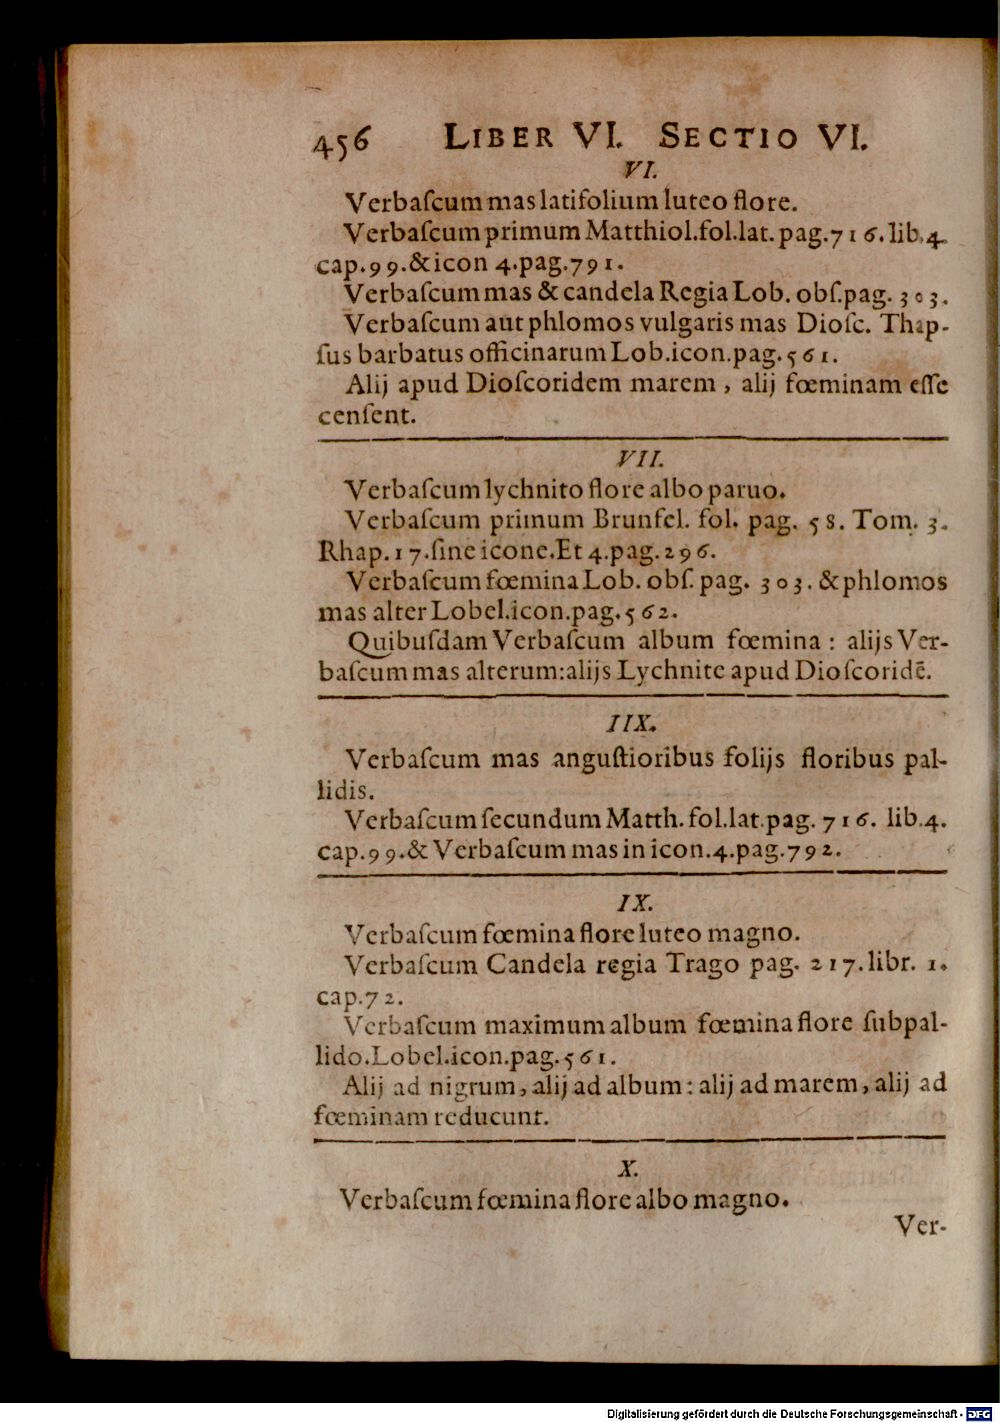 456 LIBER VI. SECTIO VI.
VI.
Verbaſcum mas latifolium luteo flore.
Verbaſcum primum Matthiol.fol.lat.pag.716.lib.4.
cap.99.&icon 4.pag.791.
Verbaſcum mas & candela Regia Lob. obſ.pag. 303.
Verbaſcum aut phlomos vulgaris mas Dioſc. Thap-
ſus barbatus officinarum Lob.icon.pag.561.
Alij apud Dioſcoridem marem, alij fœminam eſſe
cenſent.
VII.
Verbaſcum lychnito flore albo paruo.
Verbaſcum primum Brunfel. fol. pag. 58. Tom. 3.
Rhap.17.ſine icone.Et 4.pag.296.
Verbaſcum fœmina Lob. obſ. pag. 303. & phlomos
mas alter Lobel.icon.pag.562.
Quibuſdam Verbaſcum album fœmina : alijs Ver-
baſcum mas alterum:alijs Lychnite apud Dioſcoridẽ.
IIX.
Verbaſcum mas anguſtioribus folijs floribus pal-
lidis.
Verbaſcum ſecundum Matth.fol.lat.pag. 716. lib.4.
cap.99.& Verbaſcum mas in icon.4.pag.792.
IX.
Verbaſcum fœmina flore luteo magno.
Verbaſcum Candela regia Trago pag. 217.libr. 1.
cap.72.
Verbaſcum maximum album fœmina flore ſubpal-
lido.Lobel.icon.pag.561.
Alij ad nigrum, alij ad album: alij ad marem, alij ad
fœminam reducunt.
X.
Verbaſcum fœmina flore albo magno.
Ver-
Digitalisierung gefördert durch die Deutsche Forschungsgemeinschaft - DFG